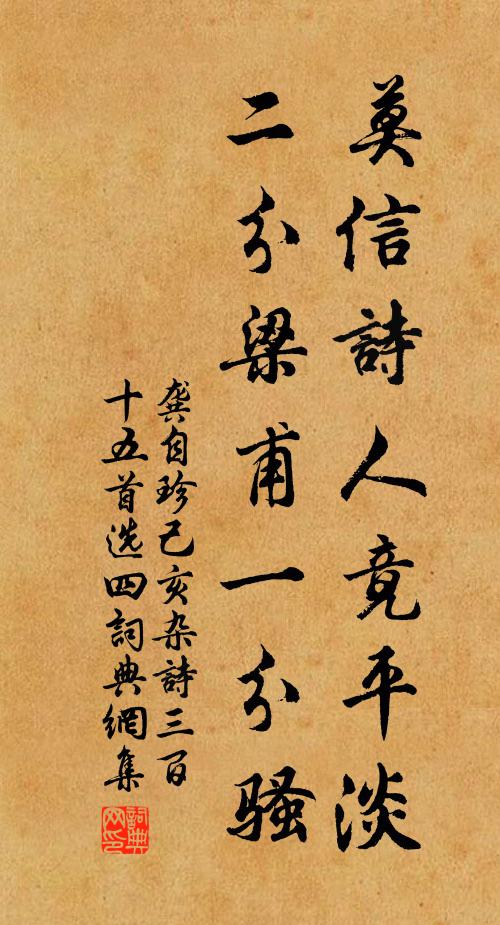 莫信詩人竟平淡
二分梁甫一分騷
龔自珍己亥杂詩三百
十五首选四詞典網集
詞典
网印